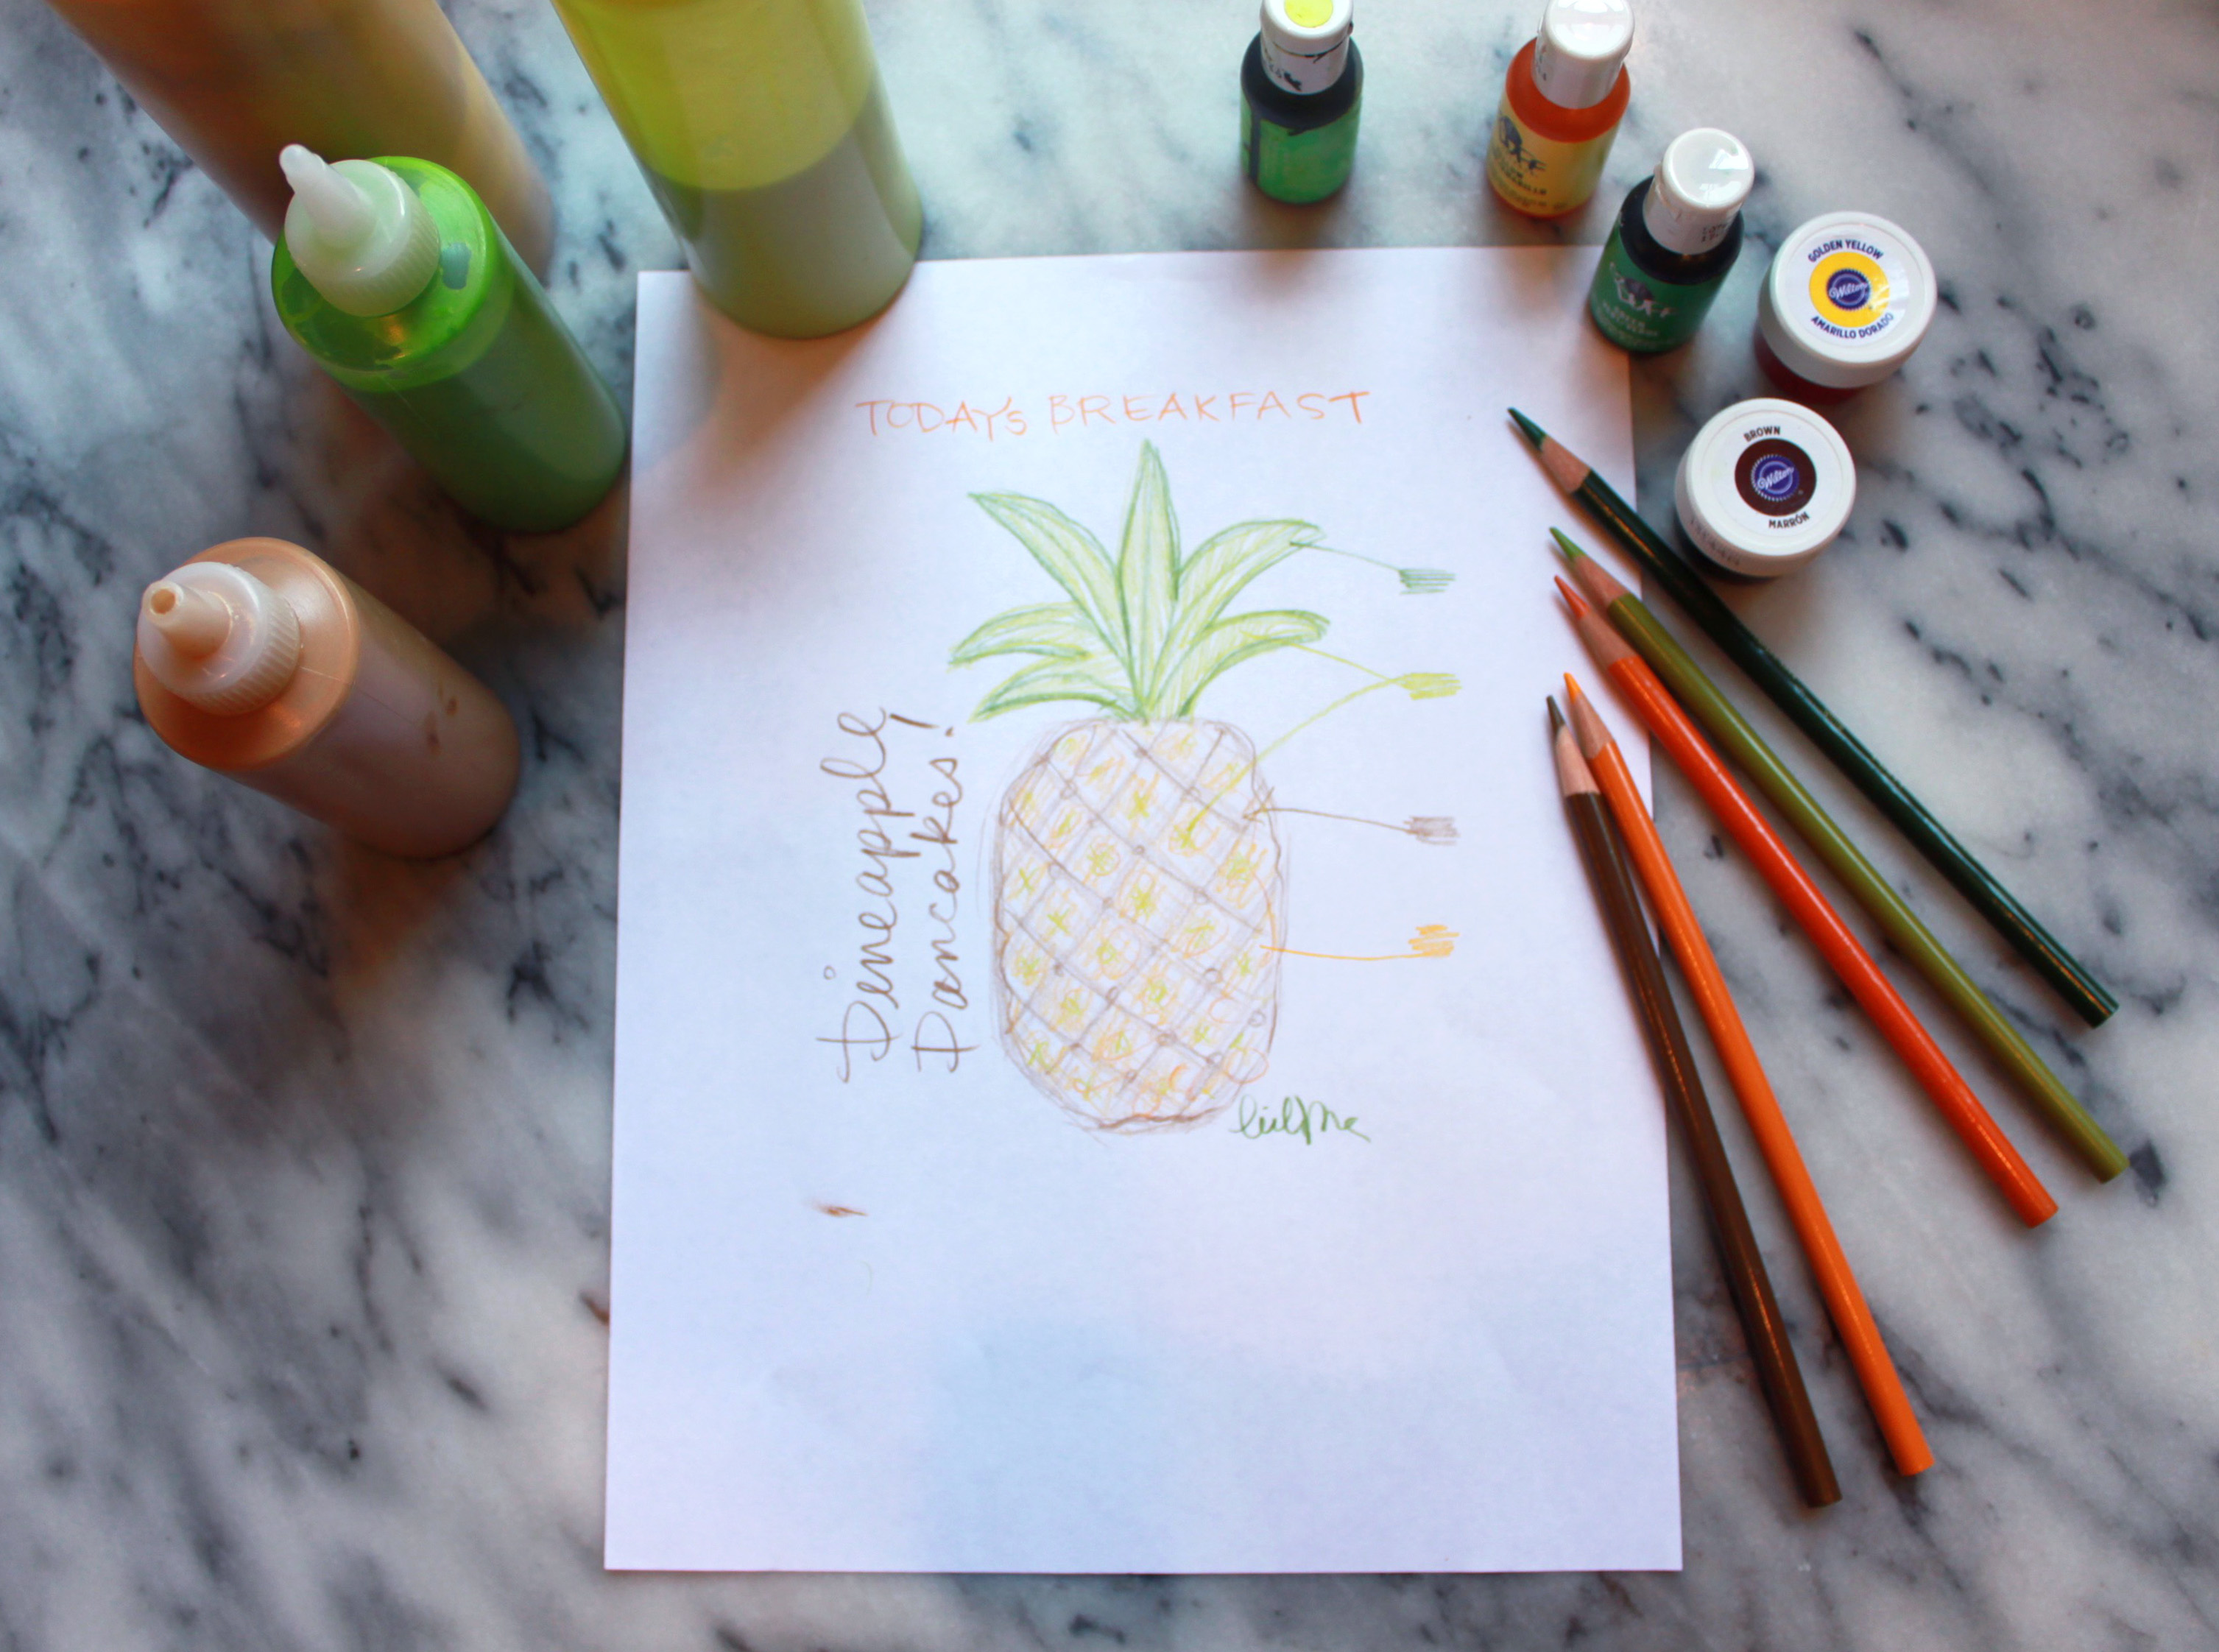 TODAY'S BREAKFAST
Pineapple
Pancakes!
GOLDEN YELLOW
Wilton
AMARILLO DORADO
BROWN
Wilton
MARRÓN